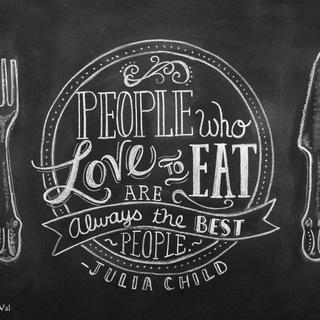 PEOPLE who
Love TO EAT
ARE
Always the BEST
PEOPLE
-JULIA CHILD